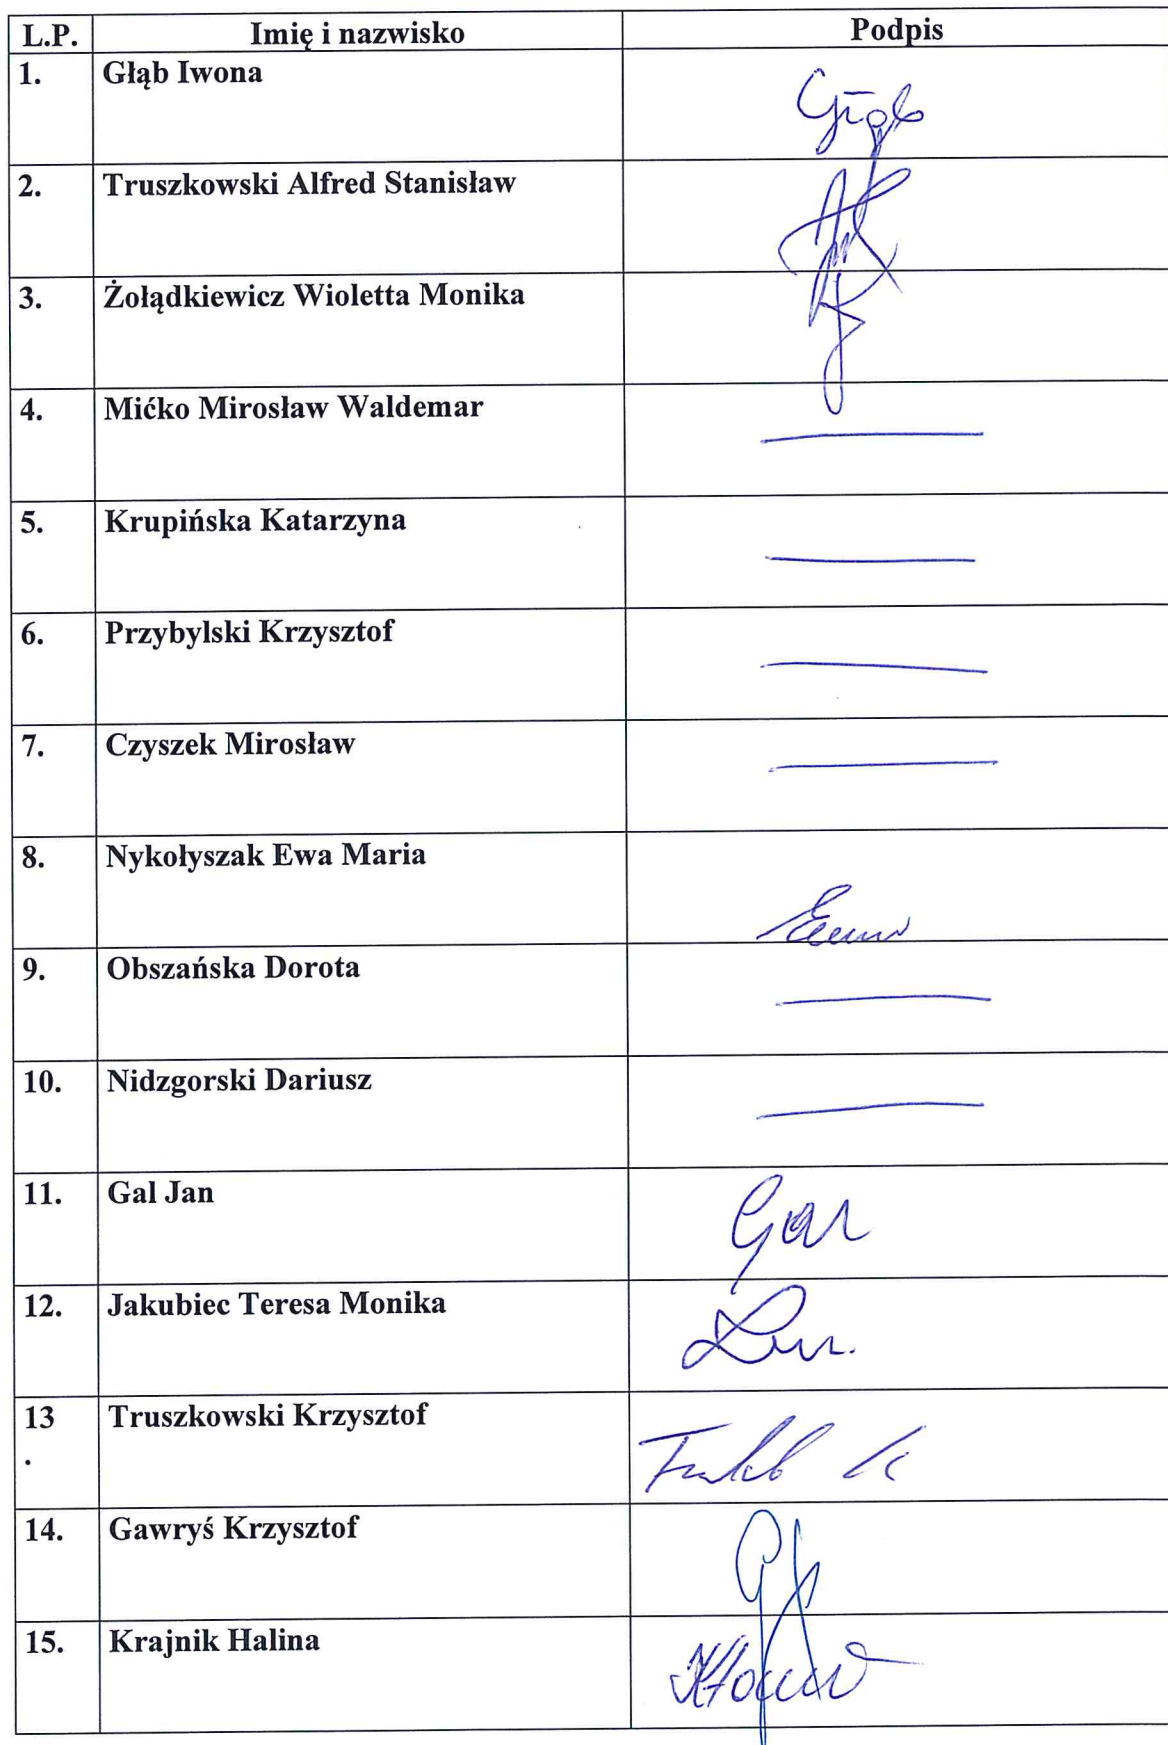 L.P. Imię i nazwisko Podpis
1. Głąb Iwona Głąb
2. Truszkowski Alfred Stanisław
3. Żołądkiewicz Wioletta Monika
4. Mićko Mirosław Waldemar
5. Krupińska Katarzyna
6. Przybylski Krzysztof
7. Czyszek Mirosław
8. Nykołyszak Ewa Maria
9. Obszańska Dorota
10. Nidzgorski Dariusz
11. Gal Jan Gal
12. Jakubiec Teresa Monika
13 Truszkowski Krzysztof
.
14. Gawryś Krzysztof
15. Krajnik Halina